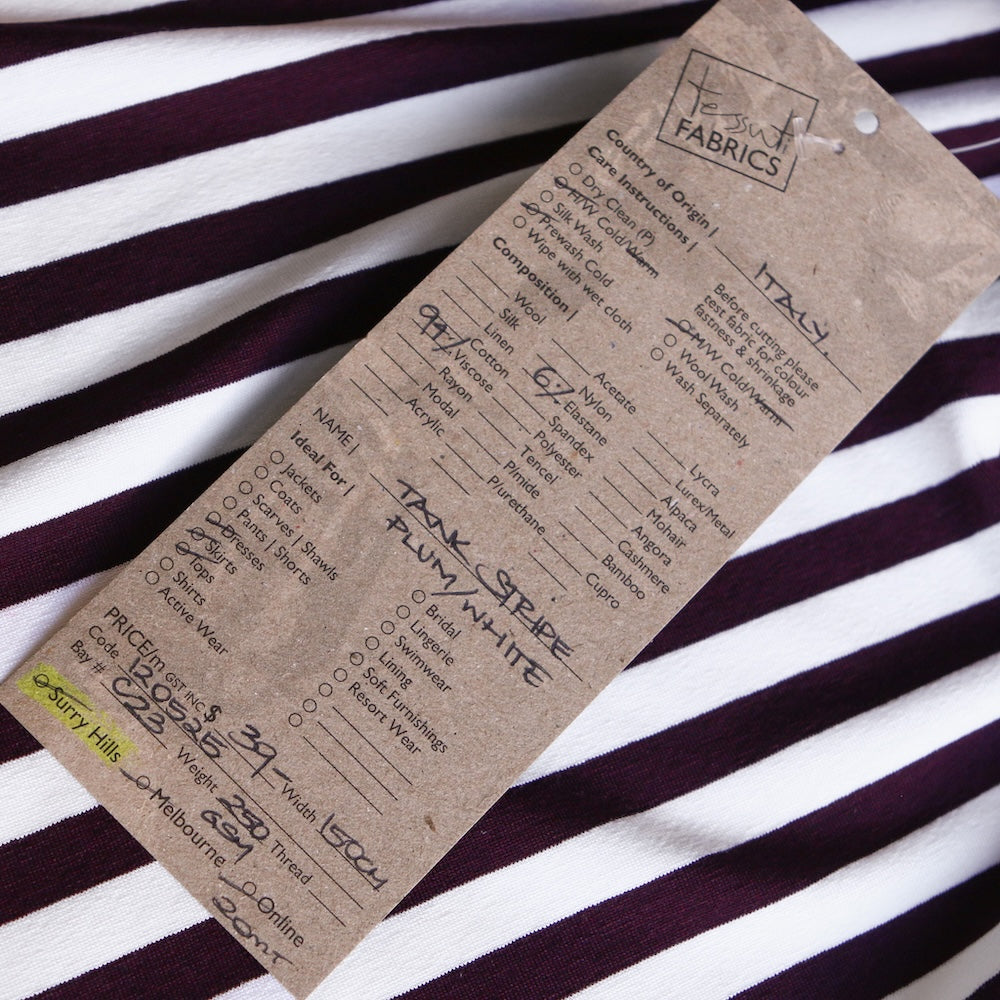 tessuti
FABRICS
Country of Origin | ITALY.
Care Instructions |
Dry Clean (P)
H/W Cold/Warm
Silk Wash
Prewash Cold
Wipe with wet cloth
Before cutting please
test fabric for colour
fastness & shrinkage
M/W Cold/Warm
Wool Wash
Wash Separately
Composition |
Wool
Silk
Linen
Cotton
94% Viscose
Rayon
Modal
Acrylic
Acetate
Nylon
6% Elastane
Spandex
Polyester
Tencel
P/mide
P/urethane
Lycra
Lurex/Metal
Alpaca
Mohair
Angora
Cashmere
Bamboo
Cupro
NAME | TANK STRIPE
PLUM/WHITE
Ideal For |
Jackets
Coats
Scarves | Shawls
Pants | Shorts
Dresses
Skirts
Tops
Shirts
Active Wear
Bridal
Lingerie
Swimwear
Lining
Soft Furnishings
Resort Wear
PRICE/m GST INC $ 39- Width 150cm
Code 12052E Weight 250 GSM Thread
Bay # C23
Surry Hills Melbourne Online
20mt